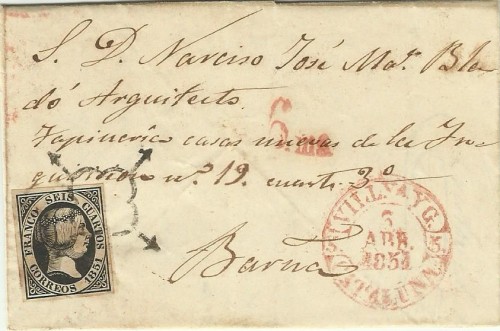 S. D. Narciso José Ma. Bla
dó Arquitecto.
6 ms
Tapinería casas nuevas de la In
quisicion n.º 19. cuarto 3º
Barna
FRANCO SEIS CUARTOS
CORREOS 1851
VILLA Y G.
6
ABR.
1851
CATALUÑA